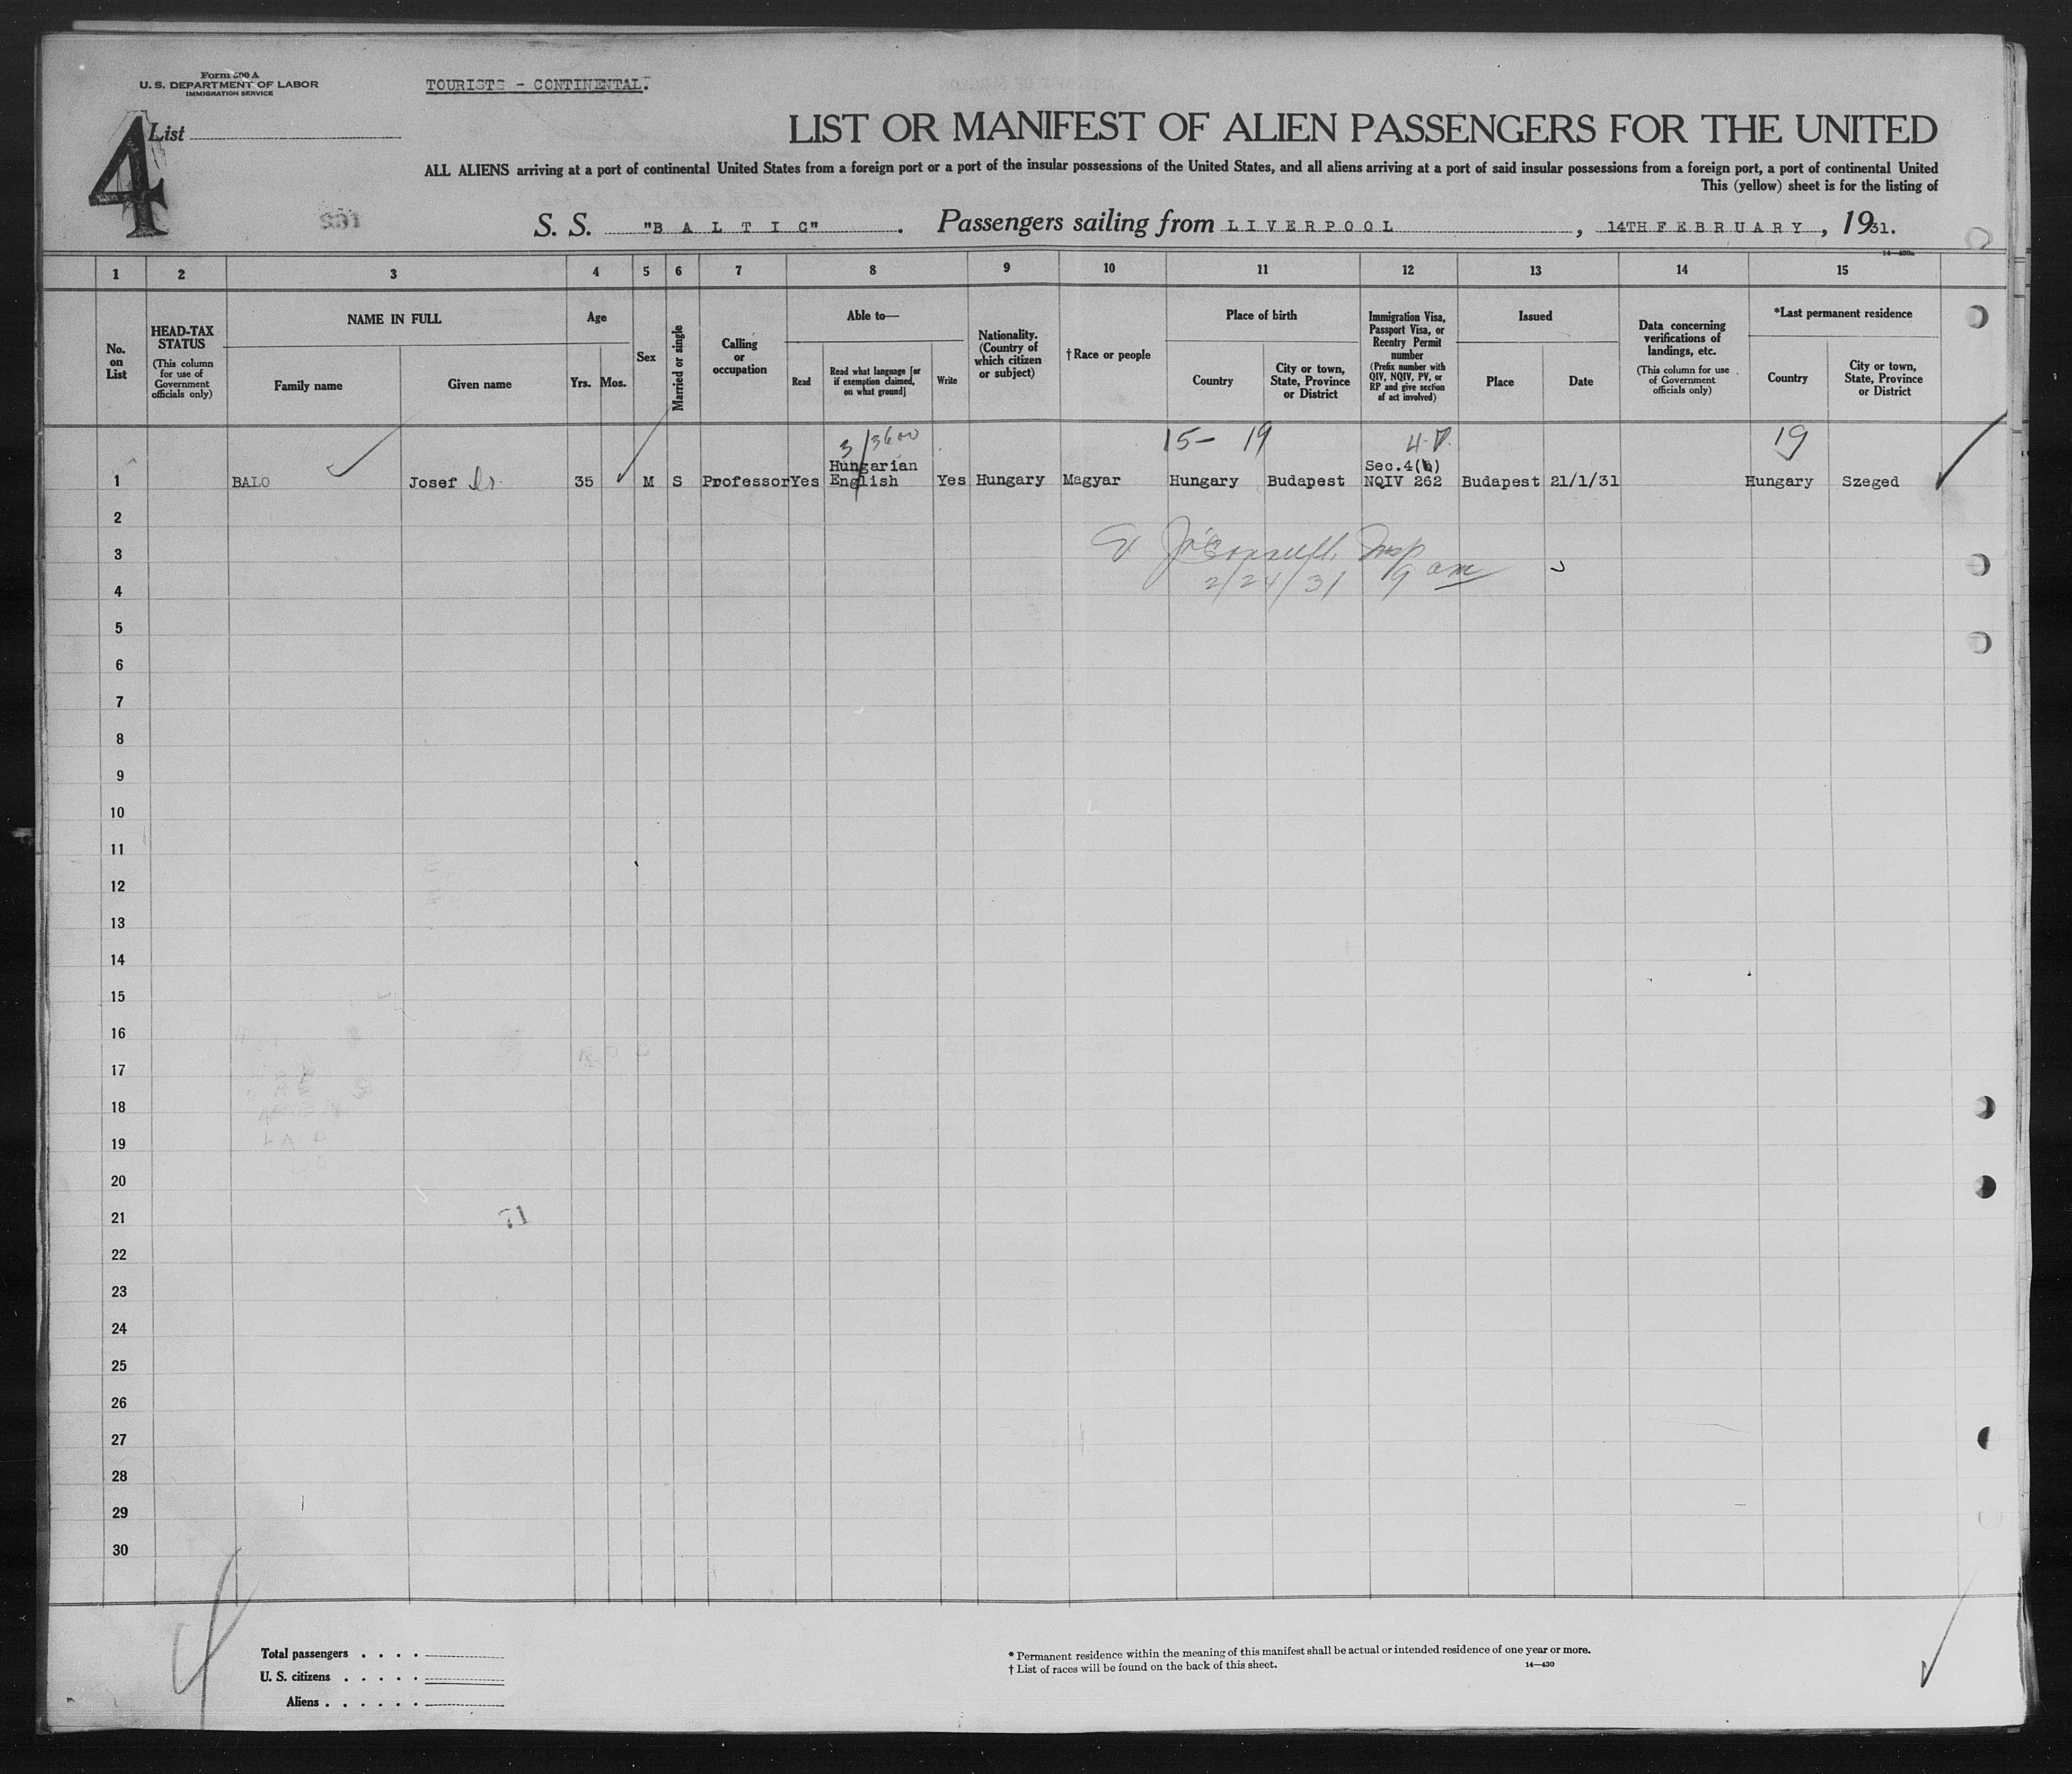 Form 500 A
U. S. DEPARTMENT OF LABOR
IMMIGRATION SERVICE
TOURISTS - CONTINENTAL.
4
List
LIST OR MANIFEST OF ALIEN PASSENGERS FOR THE UNITED
ALL ALIENS arriving at a port of continental United States from a foreign port or a port of the insular possessions of the United States, and all aliens arriving at a port of said insular possessions from a foreign port, a port of continental United
This (yellow) sheet is for the listing of
162
S. S. "B A L T I C". Passengers sailing from LIVERPOOL, 14TH FEBRUARY, 1931.
14—430a
1 2 3 4 5 6 7 8 9 10 11 12 13 14 15
No. on List
HEAD-TAX STATUS
(This column for use of Government officials only)
NAME IN FULL
Family name
Given name
Age
Yrs.
Mos.
Sex
Married or single
Calling or occupation
Able to—
Read
Read what language [or if exemption claimed, on what ground]
Write
Nationality. (Country of which citizen or subject)
†Race or people
Place of birth
Country
City or town, State, Province or District
Immigration Visa, Passport Visa, or Reentry Permit number
(Prefix number with QIV, NQIV, PV, or RP and give section of act involved)
Issued
Place
Date
Data concerning verifications of landings, etc.
(This column for use of Government officials only)
*Last permanent residence
Country
City or town, State, Province or District
3/3600 15- 19 19
Hungarian Sec.4(b)
1 BALO Josef Dr. 35 M S Professor Yes English Yes Hungary Magyar Hungary Budapest NQIV 262 Budapest 21/1/31 Hungary Szeged
2
3 Insp
4 2/24/31 9 am
5
6
7
8
9
10
11
12
13
14
15
16
17
18
19
20
21 71
22
23
24
25
26
27
28
29
30
Total passengers . . . .
U. S. citizens . . . . .
Aliens . . . . . .
* Permanent residence within the meaning of this manifest shall be actual or intended residence of one year or more.
† List of races will be found on the back of this sheet.
14—430